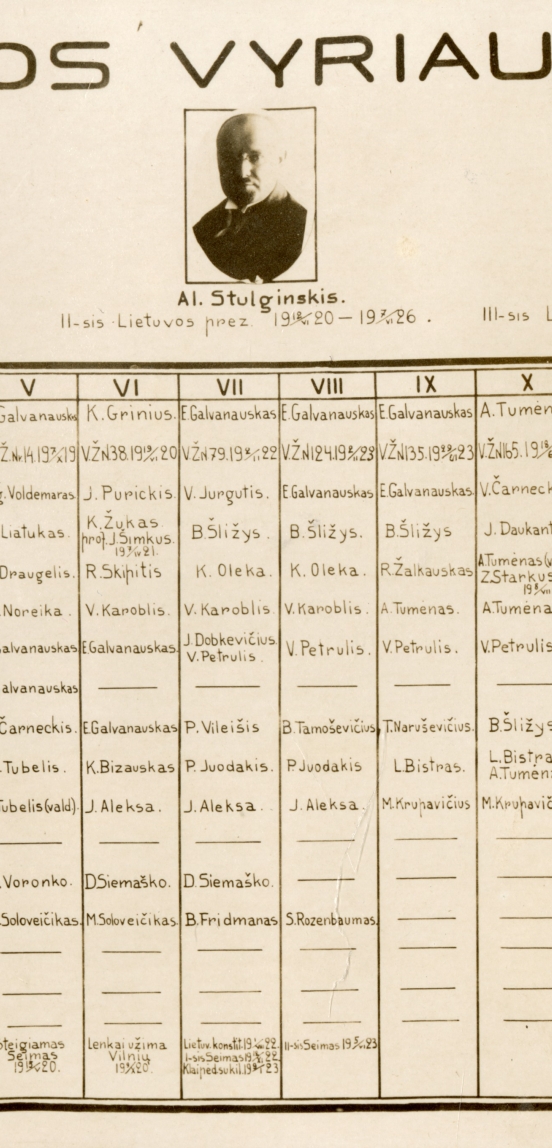 OS VYRIAU
Al. Stulginskis.
II-sis Lietuvos prez. 20 — 26 .
III-sis L
V VI VII VIII IX X
Galvanausks K.Grinius. E.Galvanauskas E.Galvanauskas E.Galvanauskas A.Tumėn
V.ŽN38. V.ŽN79. V.ŽN124. V.ŽN135. V.ŽN165.
Voldemaras. J. Purickis. V. Jurgutis. E.Galvanauskas E.Galvanauskas V.Čarneck
Liatukas. K.Žukas prof.J.Šimkus. B.Šližys. B.Šližys. B.Šližys J. Daukant
Draugelis. R.Skipitis K. Oleka. K. Oleka. R.Žalkauskas A.Tumėnas(v
Z.Starkus
Noreika. V. Karoblis. V. Karoblis. V.Karoblis. A.Tumėnas. A.Tumėna
alvanauskas E.Galvanauskas. J.Dobkevičius. V.Petrulis. V.Petrulis. V.Petrulis. V.Petrulis
alvanauskas — — — — —
Čarneckis. E.Galvanauskas P.Vileišis B.Tamoševičius T.Naruševičius. B.Šližys
.Tubelis. K.Bizauskas P.Juodakis. P.Juodakis L.Bistras. L.Bistra
A.Tumėn
Tubelis(vald). J. Aleksa. J. Aleksa. J. Aleksa. M.Krupavičius M.Krupavič
— — — — — —
.Voronko. D.Siemaško. D.Siemaško. — — —
.Soloveičikas. M.Soloveičikas. B.Fridmanas S.Rozenbaumas. — —
— — — — — —
— — — — — —
— — — — — —
oteigiamas Lenkai užima Lietuv. konstit. 22. II-sis Seimas 23
Seimas Vilnių I-sis Seimas 22.
20. 20. Klaipėd.sukil. 23